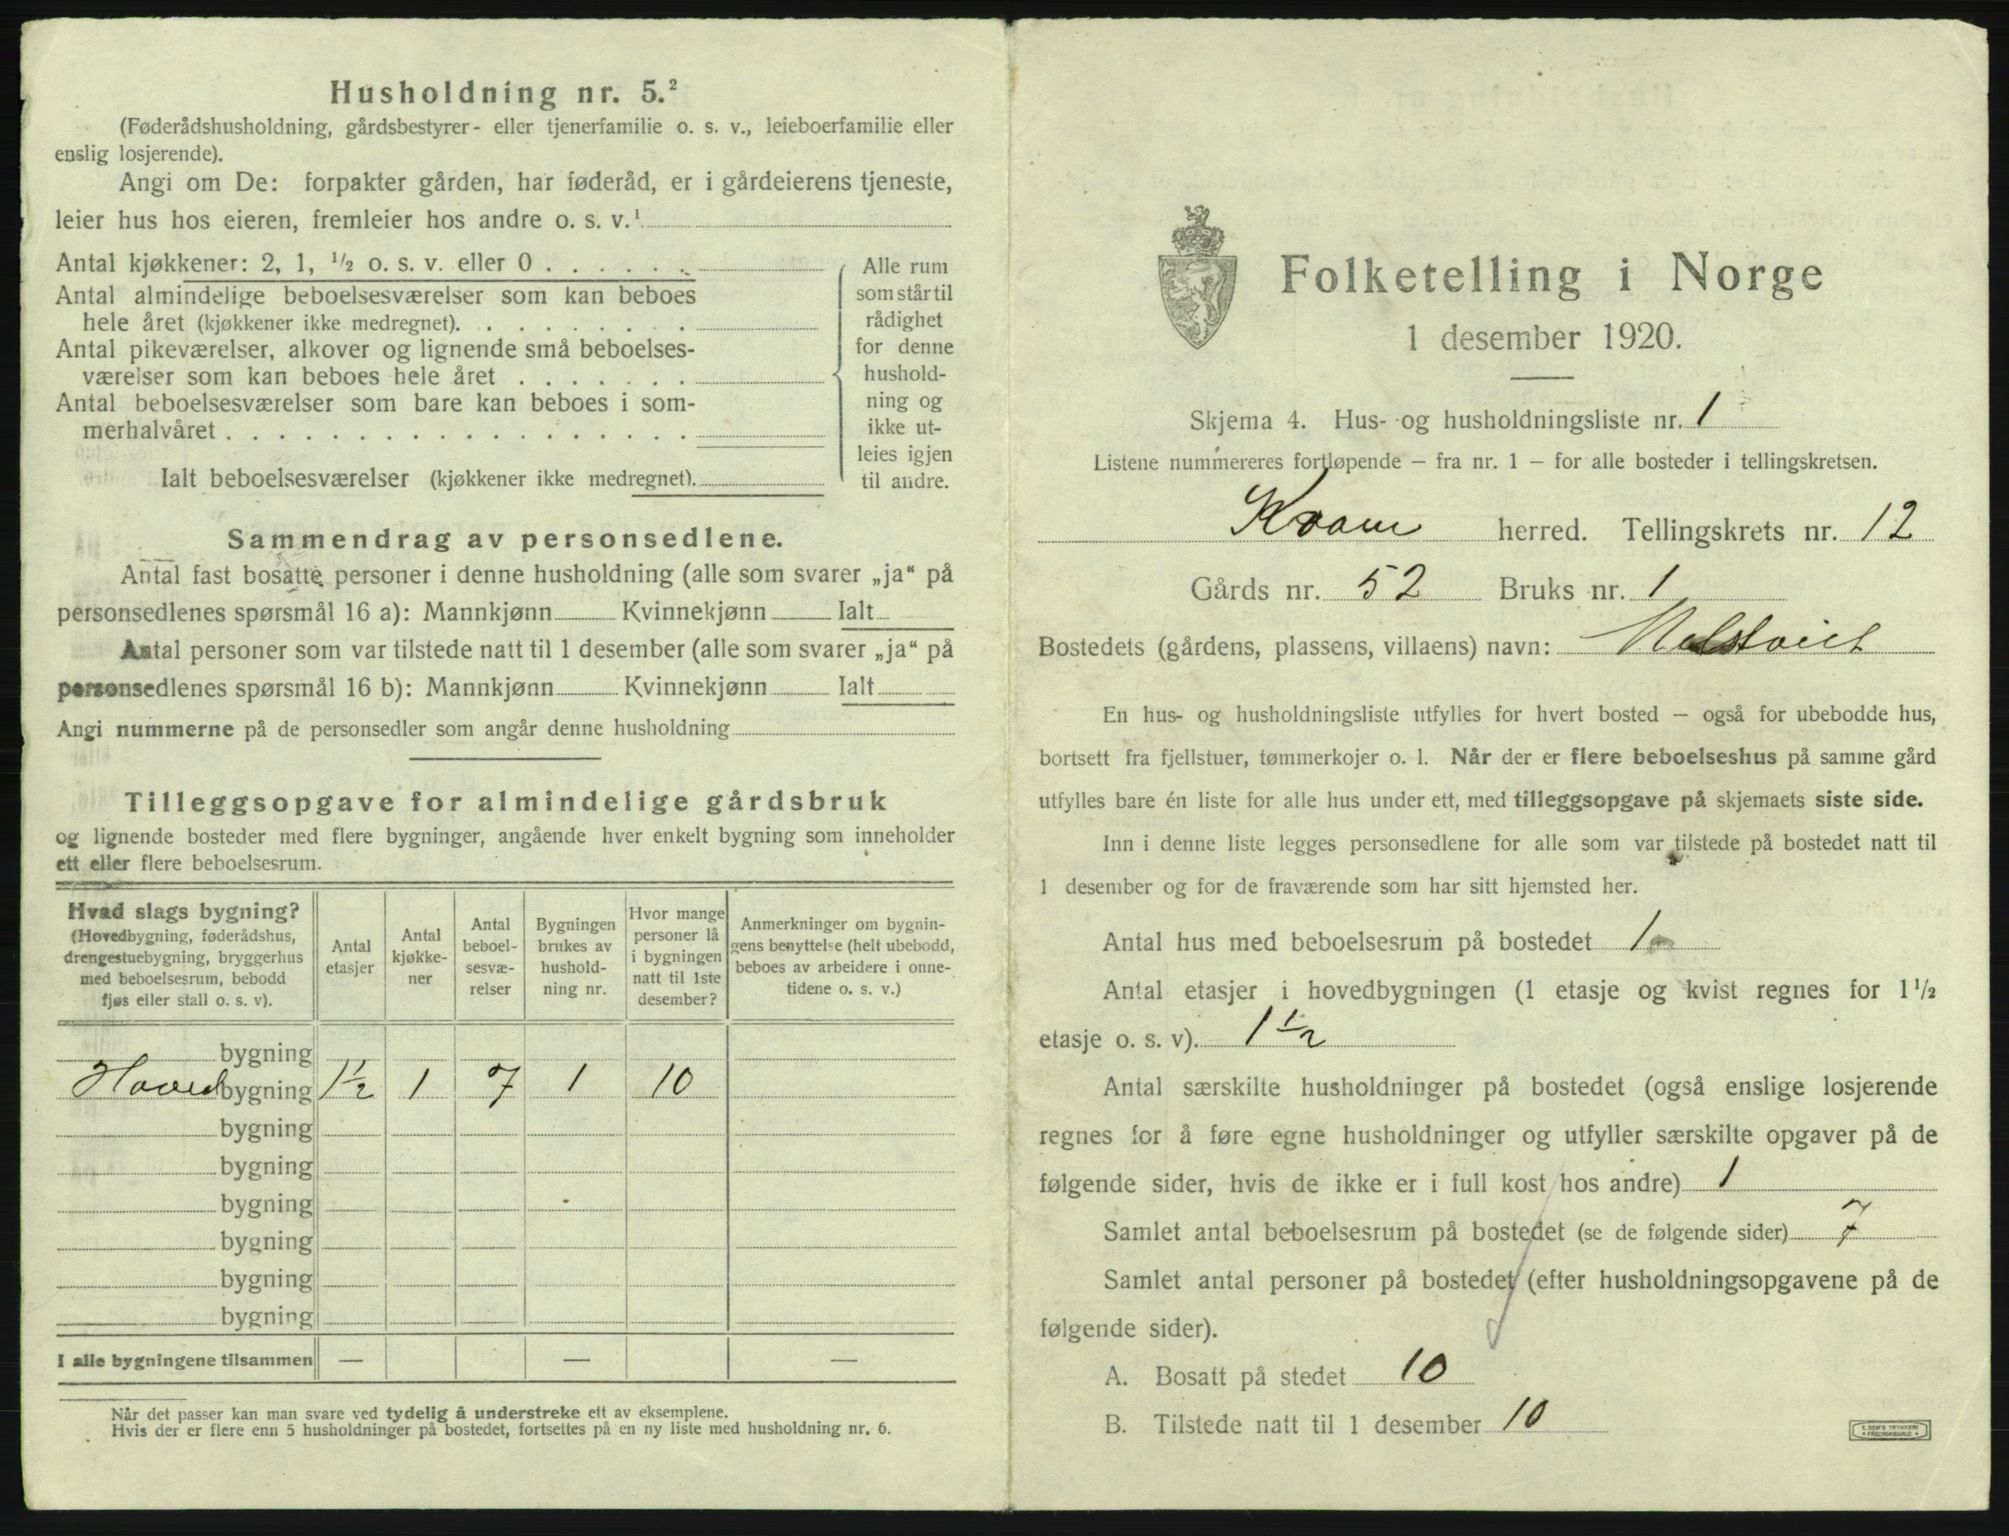 Husholdning nr. 5.²
(Føderådshusholdning, gårdsbestyrer- eller tjenerfamilie o. s. v., leieboerfamilie eller
enslig losjerende).
Angi om De: forpakter gården, har føderåd, er i gårdeierens tjeneste,
leier hus hos eieren, fremleier hos andre o. s. v.¹
Antal kjøkkener: 2, 1, ½ o. s. v. eller 0 . . . . . .
Antal almindelige beboelsesværelser som kan beboes
hele året (kjøkkener ikke medregnet). . . . . . . . .
Antal pikeværelser, alkover og lignende små beboelses-
værelser som kan beboes hele året . . . . . . .
Antal beboelsesværelser som bare kan beboes i som-
merhalvåret . . . . . . . . . . . . . . . . . .
Ialt beboelsesværelser (kjøkkener ikke medregnet).
Alle rum
som står til
rådighet
for denne
hushold-
ning og
ikke ut-
leies igjen
til andre.
Sammendrag av personsedlene.
Antal fast bosatte personer i denne husholdning (alle som svarer „ja“ på
personsedlenes spørsmål 16 a): Mannkjønn Kvinnekjønn Ialt
Antal personer som var tilstede natt til 1 desember (alle som svarer „ja“ på
personsedlenes spørsmål 16 b): Mannkjønn Kvinnekjønn Ialt
Angi nummerne på de personsedler som angår denne husholdning
Tilleggsopgave for almindelige gårdsbruk
og lignende bosteder med flere bygninger, angående hver enkelt bygning som inneholder
ett eller flere beboelsesrum.
Hvad slags bygning?
(Hovedbygning, føderådshus,
drengestuebygning, bryggerhus
med beboelsesrum, bebodd
fjøs eller stall o. s. v).
Antal
etasjer
Antal
kjøkke-
ner
Antal
beboel-
sesvæ-
relser
Bygningen
brukes av
hushold-
ning nr.
Hvor mange
personer lå
i bygningen
natt til 1ste
desember?
Anmerkninger om bygnin-
gens benyttelse (helt ubebodd,
beboes av arbeidere i onne-
tidene o. s. v.)
bygning
Hovedbygning 1½ 1 7 1 10
bygning
bygning
bygning
bygning
bygning
bygning
I alle bygningene tilsammen — — —
Når det passer kan man svare ved tydelig å understreke ett av eksemplene.
Hvis der er flere enn 5 husholdninger på bostedet, fortsettes på en ny liste med husholdning nr. 6.
Folketelling i Norge
1 desember 1920.
Skjema 4. Hus- og husholdningsliste nr. 1
Listene nummereres fortløpende – fra nr. 1 – for alle bosteder i tellingskretsen.
Kvam herred. Tellingskrets nr. 12
Gårds nr. 52 Bruks nr. 1
Bostedets (gårdens, plassens, villaens) navn:
En hus- og husholdningsliste utfylles for hvert bosted – også for ubebodde hus,
bortsett fra fjellstuer, tømmerkojer o. l. Når der er flere beboelseshus på samme gård
utfylles bare én liste for alle hus under ett, med tilleggsopgave på skjemaets siste side.
Inn i denne liste legges personsedlene for alle som var tilstede på bostedet natt til
1 desember og for de fraværende som har sitt hjemsted her.
Antal hus med beboelsesrum på bostedet 1
Antal etasjer i hovedbygningen (1 etasje og kvist regnes for 1½
etasje o. s. v). 1½
Antal særskilte husholdninger på bostedet (også enslige losjerende
regnes for å føre egne husholdninger og utfyller særskilte opgaver på de
følgende sider, hvis de ikke er i full kost hos andre) 1
Samlet antal beboelsesrum på bostedet (se de følgende sider) 7
Samlet antal personer på bostedet (efter husholdningsopgavene på de
følgende sider).
A. Bosatt på stedet 10
B. Tilstede natt til 1 desember 10